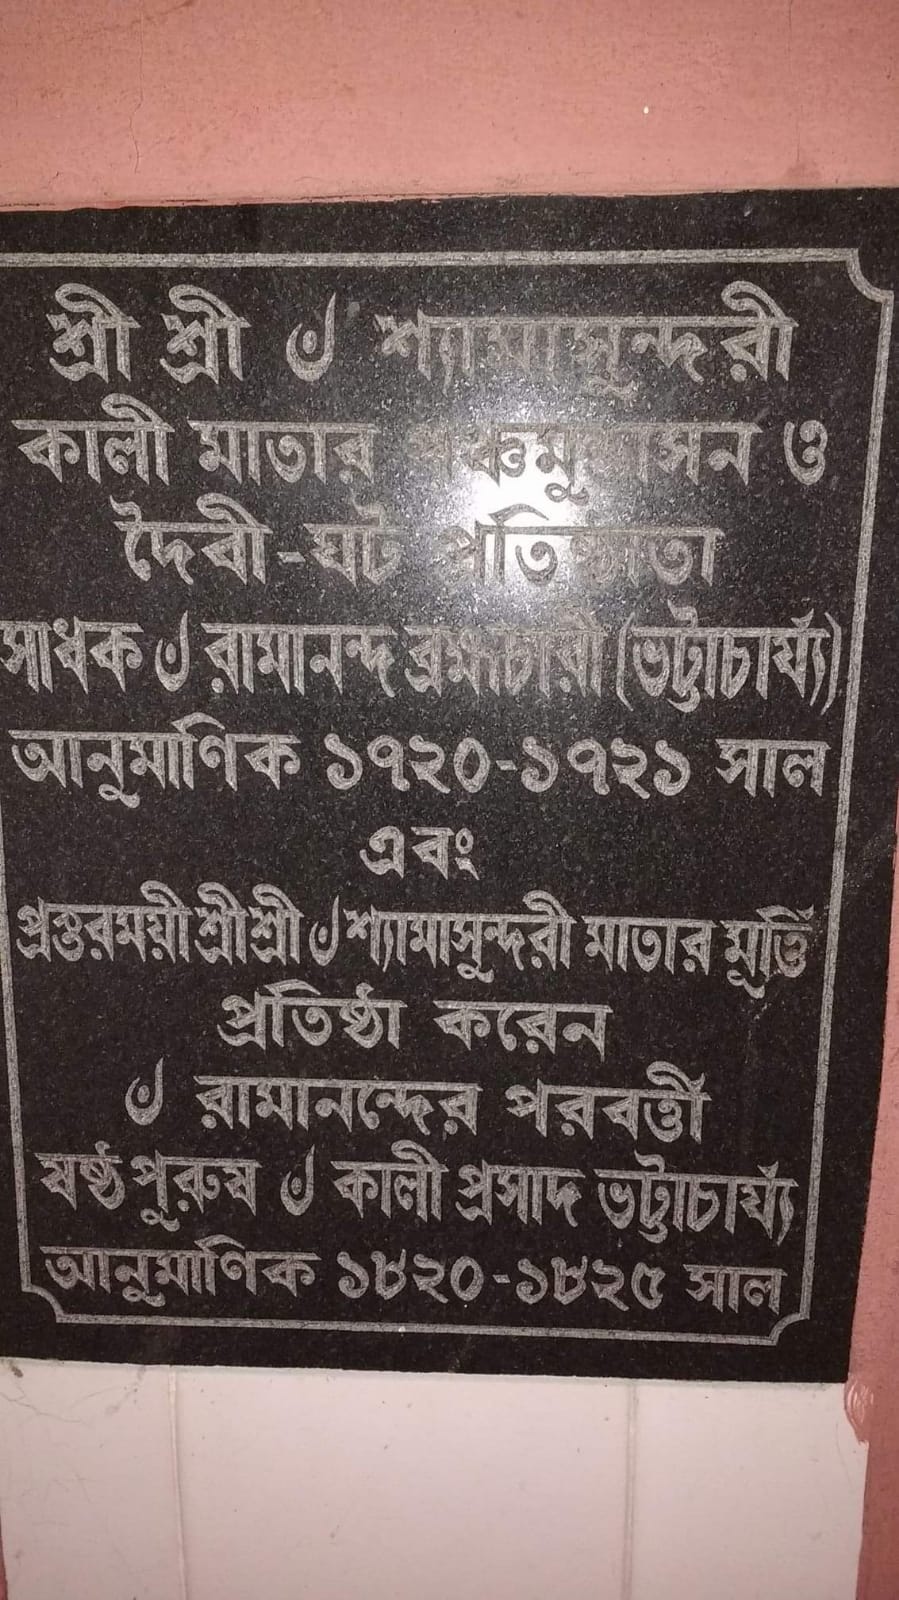 শ্রী শ্রী ঁ শ্যামাসুন্দরী
কালী মাতার পঞ্চমুণ্ডাসন ও
দৈবী-ঘট প্রতিষ্ঠাতা
সাধক ঁ রামানন্দ ব্রহ্মচারী (ভট্টাচার্য্য)
আনুমাণিক ১৭২০-১৭২১ সাল
এবং
প্রস্তরময়ী শ্রীশ্রী ঁ শ্যামাসুন্দরী মাতার মূর্ত্তি
প্রতিষ্ঠা করেন
ঁ রামানন্দের পরবর্ত্তী
ষষ্ঠ পুরুষ ঁ কালী প্রসাদ ভট্টাচার্য্য
আনুমাণিক ১৮২০-১৮২৫ সাল